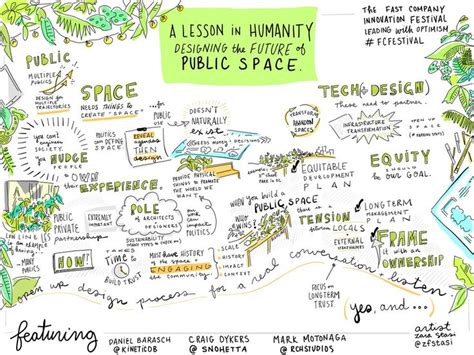 A LESSON in HUMANITY
DESIGNING the FUTURE of
PUBLIC SPACE.
THE FAST COMPANY
INNOVATION FESTIVAL
LEADING with OPTIMISM
#FCFESTIVAL
PUBLIC
MULTIPLE
PUBLICS
DESIGN for
MULTIPLE
TRAJECTORIES
SPACE
NEEDS THINGS to
CREATE "SPACE"
for
PUBLIC
USE
DOESN'T
NATURALLY
exist
NEEDS MONEY + DECISIONS
TRANSFORM
ABANDON
SPACES
TECH + DESIGN
These need to partner.
INFRASTRUCTURE
TRANSFORMATION
you can't
engineer
society.
POLITICS
can DEFINE
SPACE
REVEAL
AGENDAS
THEN
design
you NUDGE
PEOPLE
their EXPERIENCE.
PROVIDE PHYSICAL
THINGS to PROMOTE
THE WORLD WE
WANT
EQUITABLE
DEVELOPMENT
PLAN
EQUITY
is a HUMAN
GOAL.
to OWN
WHEN you BUILD a
PUBLIC SPACE
there is a
TENSION
between LOCALS
& EXTERNAL
LONGTERM
MANAGEMENT
PLAN
PUBLIC
PRIVATE
Partnership
EXTREMELY
IMPORTANT
ROLE
of ARCHITECTS
& DESIGNERS
WORK
impact
POLITICS
NOW!
TIME to
BUILD TRUST
SUSTAINABILITY
MUST HAVE HISTORY
in the space +
ENGAGING
the COMMUNITY.
WHO
SCALE
HISTORY
IMPACT
CONTEXT
FRAME
it with an
OWNERSHIP
FOCUS
on
LONGTERM
TRUST.
open up design process for a real conversation. listen.
yes, and...
featuring
DANIEL BARASCH
@KINETICDB
CRAIG DYKERS
@ SNOHETTA
MARK MOTONAGA
@RCHSTUDIOS
artist
zara stasi
@zfstasi